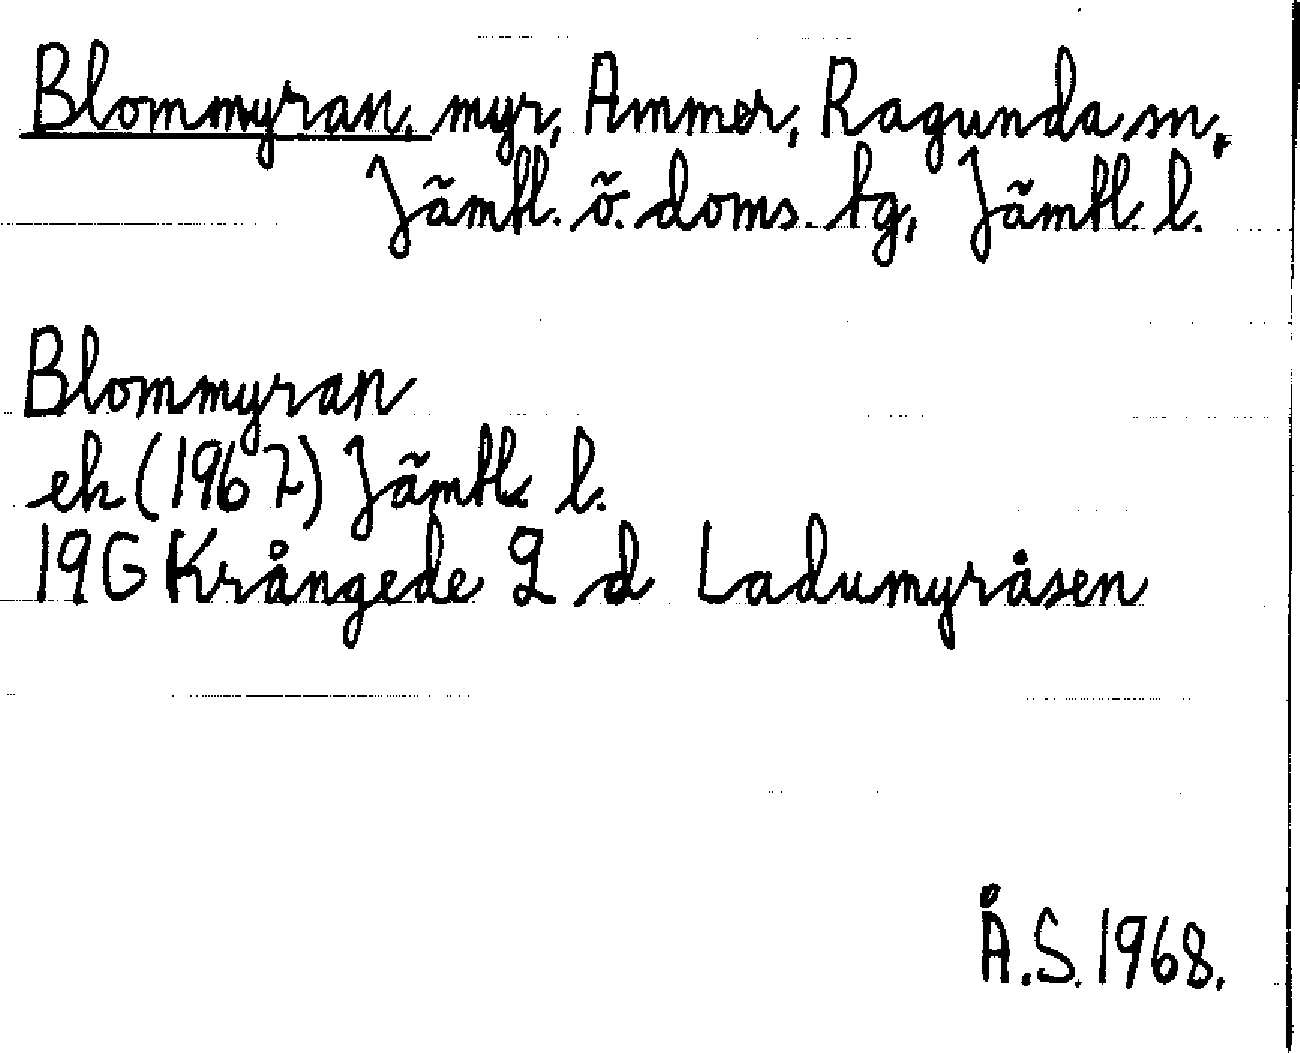 Blommyran, myr, Ammer, Ragunda sn,
Jämtl. ö. doms. tg, Jämtl. l.
Blommyran
ek (1967) Jämtl. l.
19G Krångede 9 d Ladumyråsen
Å.S. 1968.